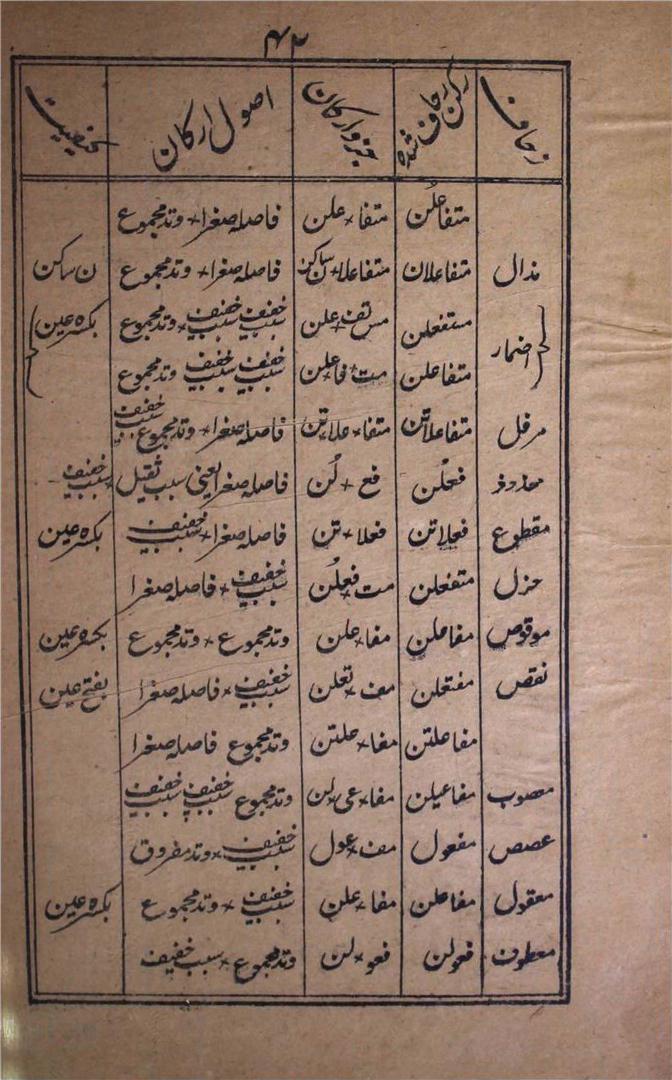 ۴۲
زحاف رکن زحاف شدہ جزو ارکان اصول ارکان کیفیت
متفاعلُن متفا + علن فاصلہ صغرا + وتد مجموع
مذال متفاعلان متفاعلا + ن ساکن فاصلہ صغرا + وتد مجموع ن ساکن
اضمار مستفعلن مس تف + علن سبب خفیف سبب خفیف + وتد مجموع بکسرہ عین
متفاعلن مت + فا + علن سبب خفیف سبب خفیف وتد مجموع
مرفل متفاعلاتن متفا + علاتن فاصلہ صغرا + وتد مجموع سبب خفیف
فعلُن فع + لُن فاصلہ صغرا یعنی سبب ثقیل + سبب خفیف
مقطوع فعلاتن فعلا + تن فاصلہ صغرا + سبب خفیف بکسرہ عین
خزل متفعلن مت + فعلُن سبب خفیف + فاصلہ صغرا
موقوص مفاعلن مفا + علن وتد مجموع + وتد مجموع بکسرہ عین
نقص مفتعلن مف + تعلن سبب خفیف + فاصلہ صغرا بفتح عین
مفاعلتن مفا + علتن وتد مجموع فاصلہ صغرا
معصوب مفاعیلن مفا + عی + لن وتد مجموع سبب خفیف سبب خفیف
عصص مفعول مف + عول سبب خفیف + وتد مفروق
معقول مفاعلن مفا + علن سبب خفیف + وتد مجموع بکسرہ عین
معطوف فعولن فعو + لن وتد مجموع + سبب خفیف